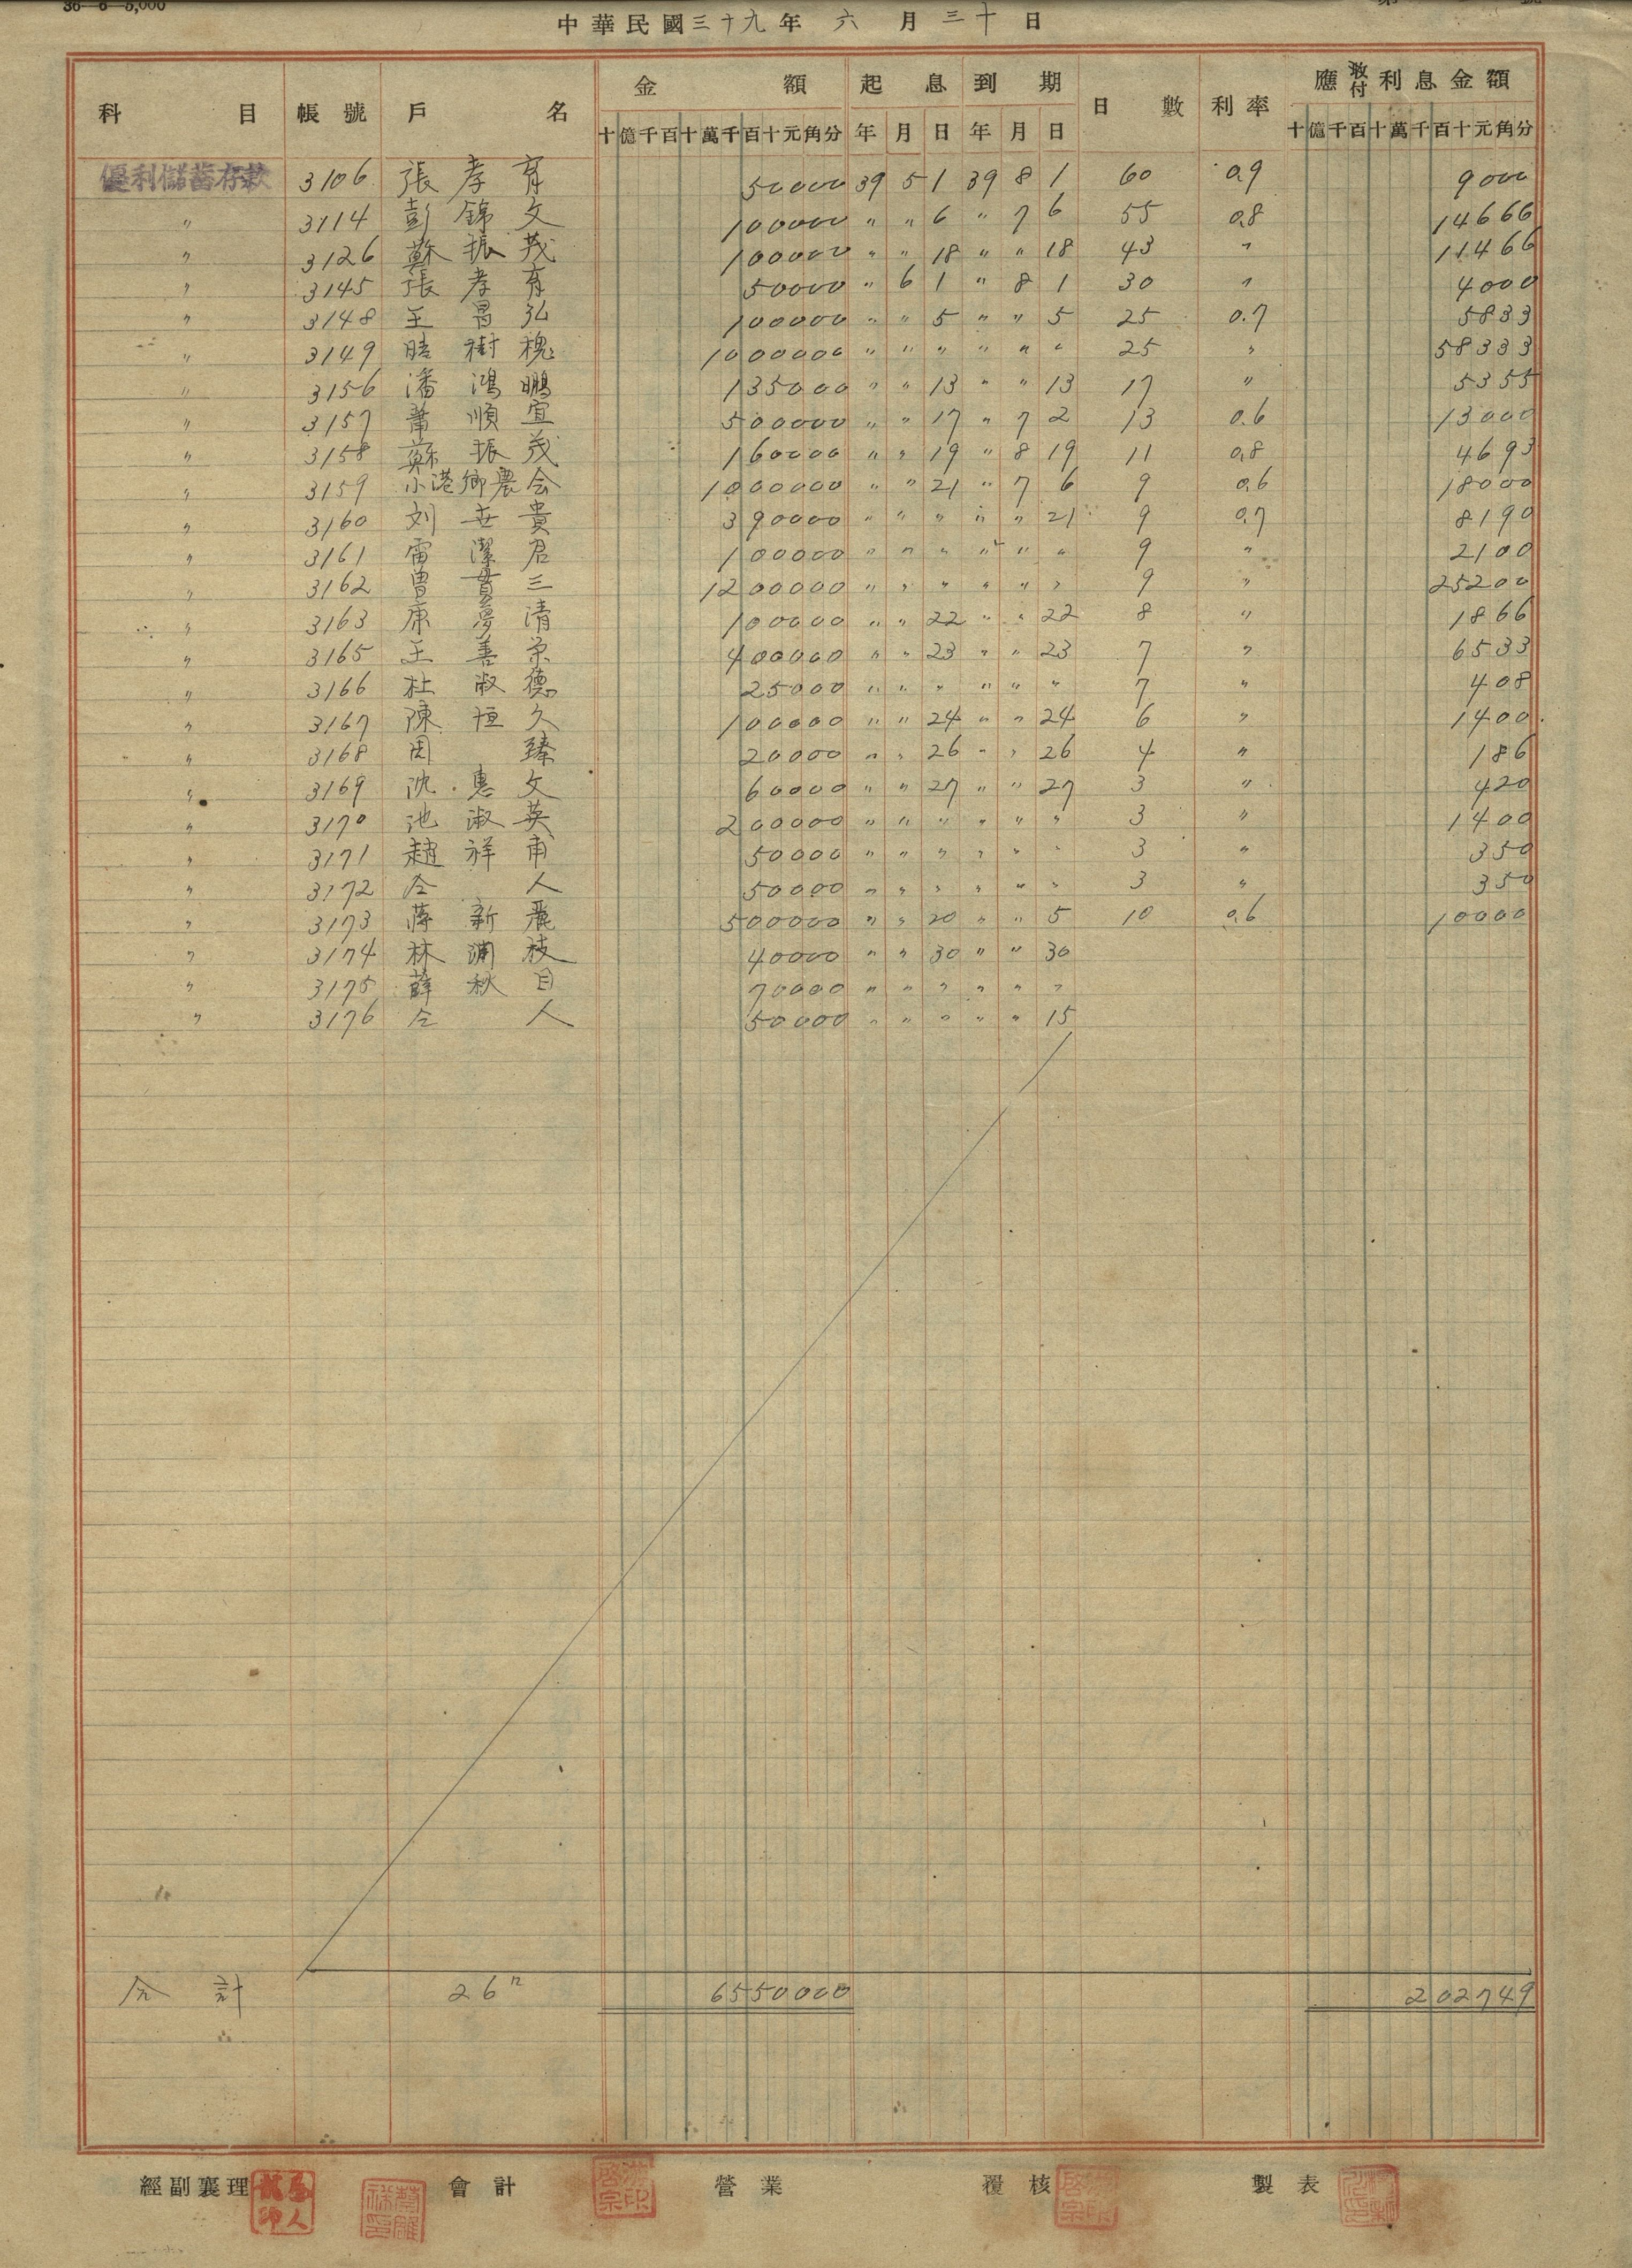 36—6—5,000
中華民國三十九年 六 月 三十 日
科 目 帳號 戶 名 金 額 起息 到期 日數 利率 應收付利息金額
十億千百十萬千百十元角分 年 月 日 年 月 日 十億千百十萬千百十元角分
優利儲蓄存款 3106 張孝育 50000 39 5 1 39 8 1 60 0.9 9000
〃 3114 彭錦文 100000 〃 〃 6 〃 7 6 55 0.8 14666
〃 3126 蘇振茂 100000 〃 〃 18 〃 〃 18 43 〃 11466
〃 3145 張孝育 50000 〃 6 1 〃 8 1 30 〃 4000
〃 3148 王昌弘 100000 〃 〃 5 〃 〃 5 25 0.7 5833
〃 3149 樹槐 1000000 〃 〃 〃 〃 〃 〃 25 〃 58333
〃 3156 潘鴻鵬 135000 〃 〃 13 〃 〃 13 17 〃 5355
〃 3157 蕭順宜 500000 〃 〃 17 〃 7 2 13 0.6 13000
〃 3158 蘇振茂 160000 〃 〃 19 〃 8 19 11 0.8 4693
〃 3159 小港鄉農会 1000000 〃 〃 21 〃 7 6 9 0.6 18000
〃 3160 刘世貴 390000 〃 〃 〃 〃 〃 21 9 0.7 8190
〃 3161 雷潔君 100000 〃 〃 〃 〃 〃 〃 9 〃 2100
〃 3162 曾貫三 1200000 〃 〃 〃 〃 〃 〃 9 〃 25200
〃 3163 康夢清 100000 〃 〃 22 〃 〃 22 8 〃 1866
〃 3165 王善荣 400000 〃 〃 23 〃 〃 23 7 〃 6533
〃 3166 杜淑德 25000 〃 〃 〃 〃 〃 〃 7 〃 408
〃 3167 陳恒久 100000 〃 〃 24 〃 〃 24 6 〃 1400
〃 3168 周臻 20000 〃 〃 26 〃 〃 26 4 〃 186
〃 3169 沈惠文 60000 〃 〃 27 〃 〃 27 3 〃 420
〃 3170 池淑英 200000 〃 〃 〃 〃 〃 〃 3 〃 1400
〃 3171 趙祥甫 50000 〃 〃 〃 〃 〃 〃 3 〃 350
〃 3172 仝人 50000 〃 〃 〃 〃 〃 〃 3 〃 350
〃 3173 蔣新麗 500000 〃 〃 20 〃 〃 5 10 0.6 10000
〃 3174 林渊枝 40000 〃 〃 30 〃 〃 30
〃 3175 薛秋目 70000 〃 〃 〃 〃 〃 〃
〃 3176 仝人 50000 〃 〃 〃 〃 〃 15
合計 26 6550000 202749
經副襄理 會計 營業 覆核 製表